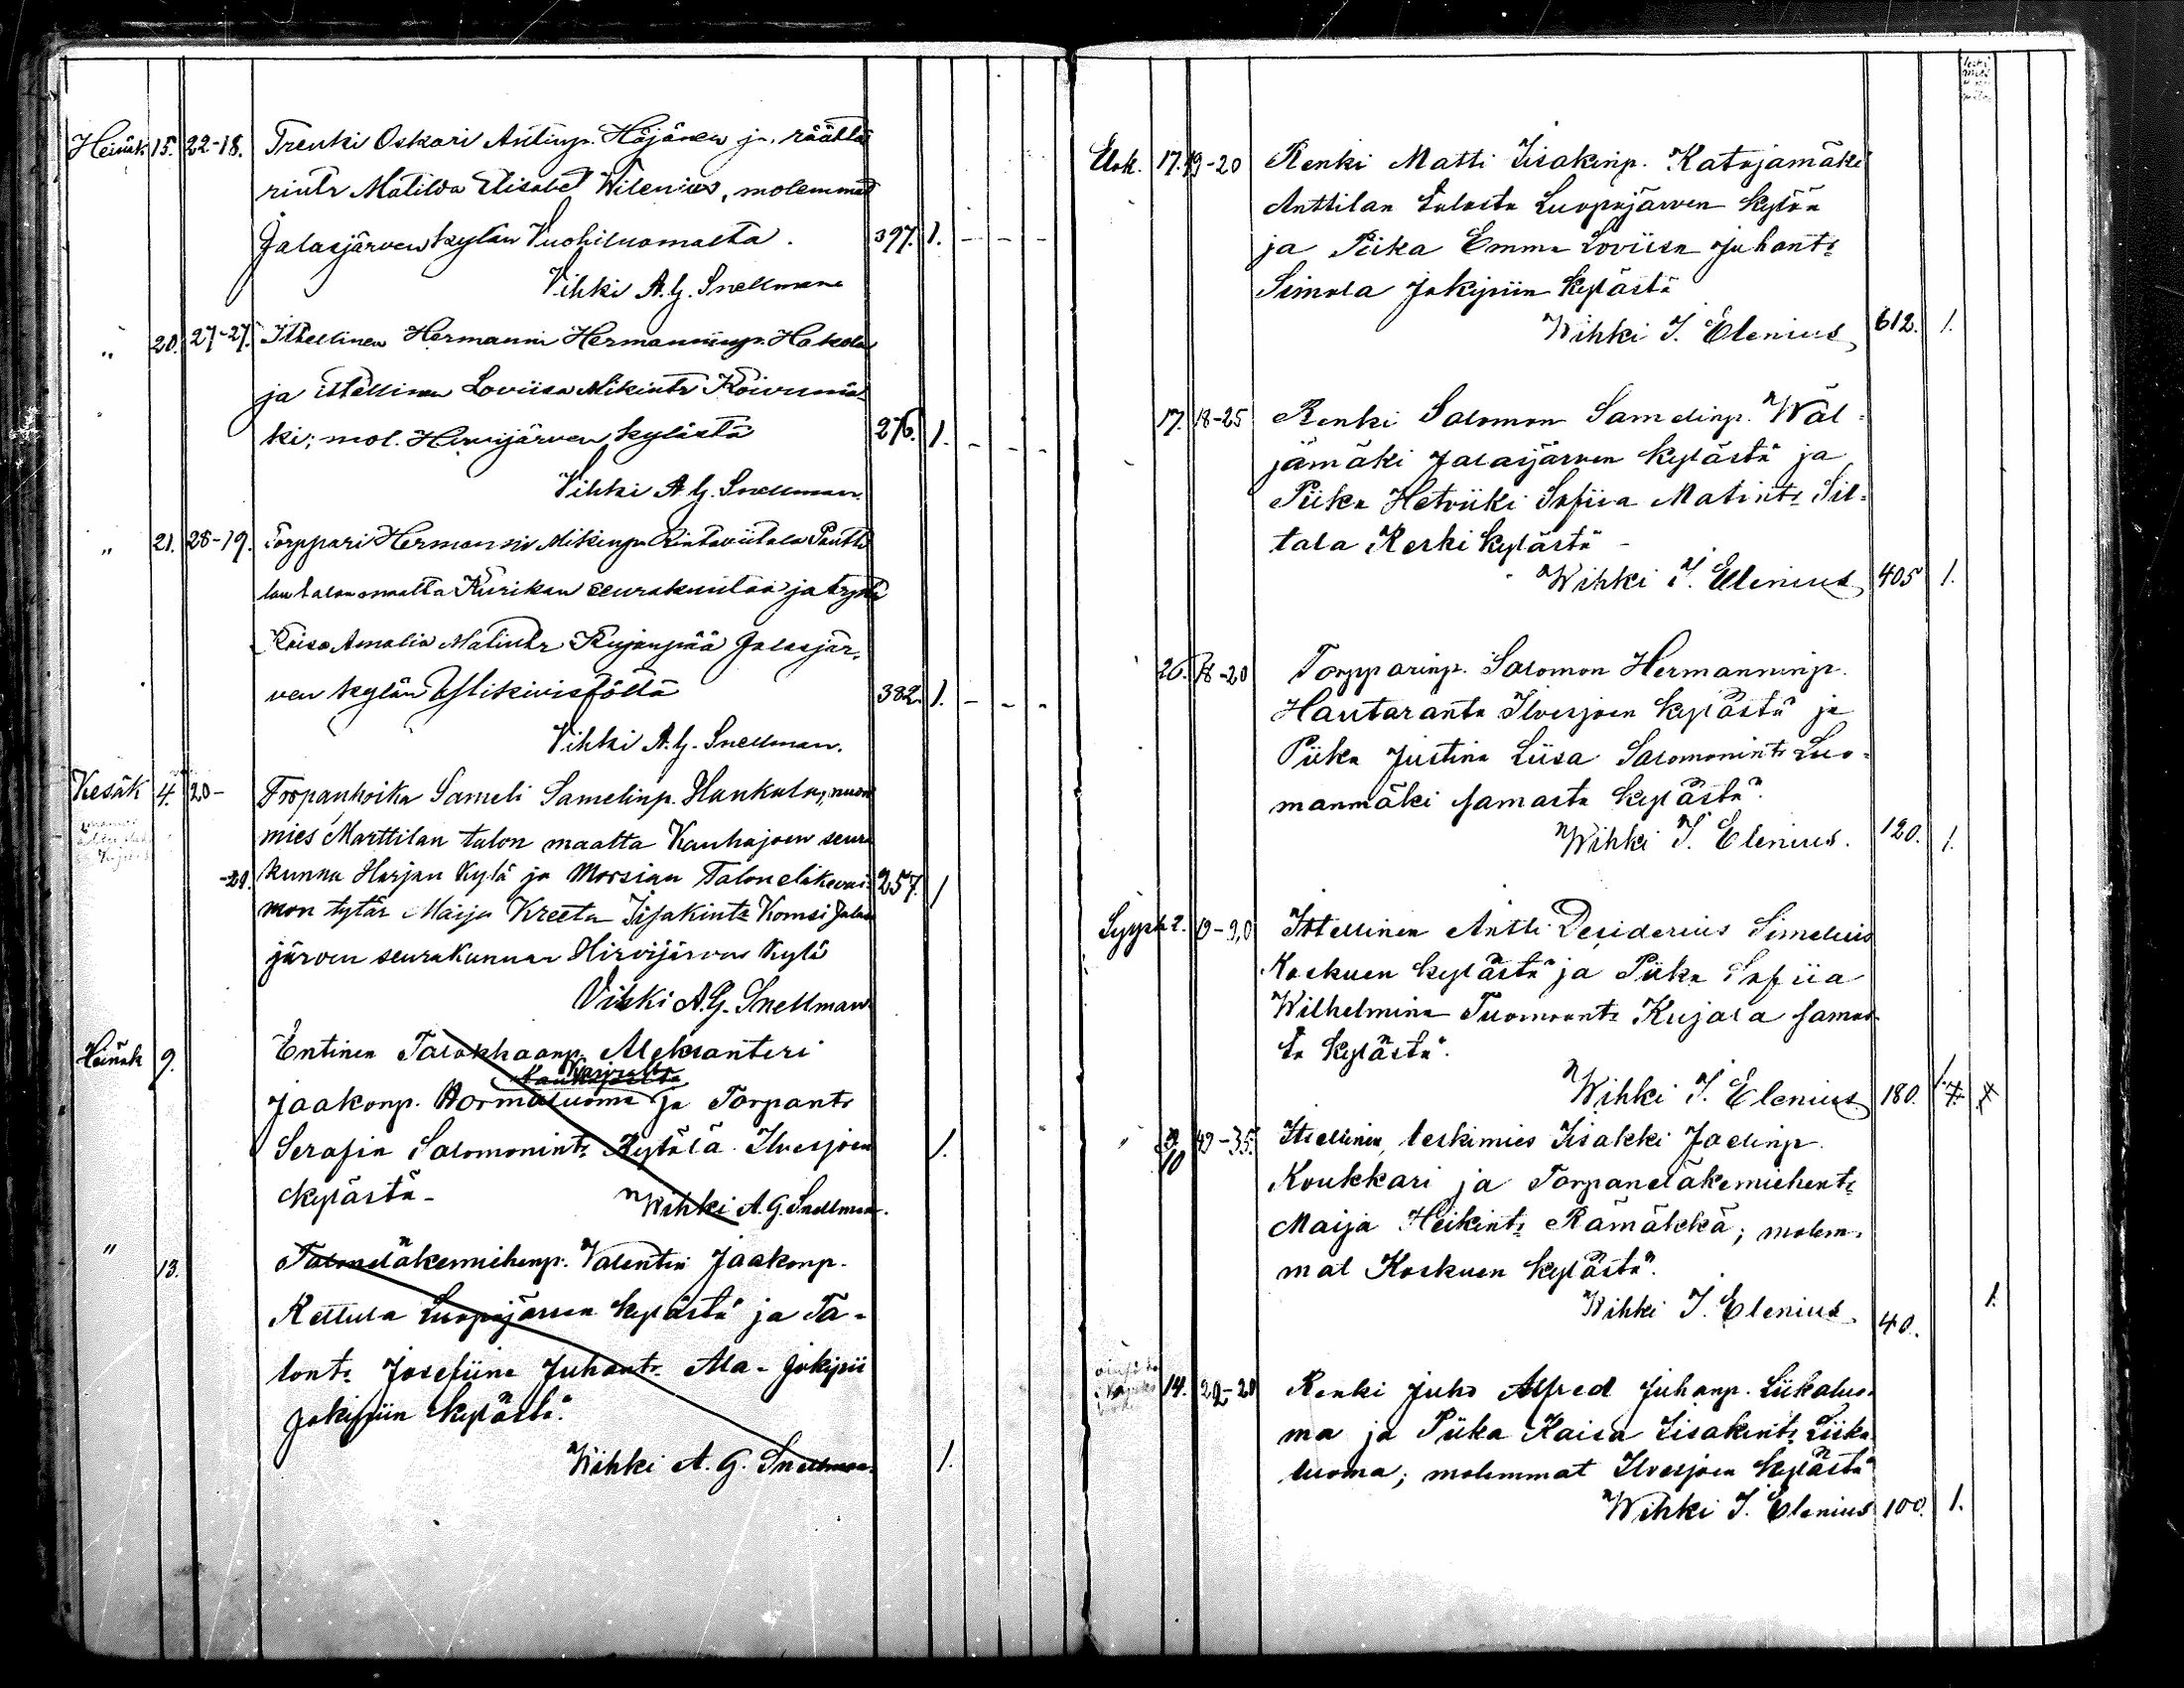 Heinäk 15. 22-18. Trenki Oskari Antinp. Häjänen ja räättä
rintr Matilda Elisabet Wilenius, molemmat
Jalasjärven kylän Vuohiluomalta. 397. 1. - - -
Vihki A. G. Snellman
" 20. 27-27. Itsellinen Hermanni Hermanninp. Hakola
ja itsellinen Loviisa Mikintr Koivumä-
ki; mol. Hirvijärven kylästä 276. 1. - - -
Vihki A. G. Snellman.
" 21. 28-19. Torppari Hermanni Mikinp. Rintaviitala Pantti
lan talon maalta Kurikan seurakuntaa ja
Kaisa Amalia Matintr Kujanpää Jalasjär-
ven kylän Yliskivistöltä 382. 1. - - -
Vihki A. G. Snellman.
Kesäk 4. 20- Torpanpoika Sameli Samelinp. Hankala, nuori
mies Marttilan talon maalta Kauhajoen seura
-29. kunnan Harjan Kylä ja Morsian Talon eläkevai- 257. 1
mon tytär Maija Kreeta Iisakintr Komsi Jalas
järven seurakunnan Hirvijärven kylä
Vihki A. G. Snellman
Heinäk 9. Entinen Talokkaanp. Aleksanteri
Jaakonp. Hormaluoma ja Torpantr
Serafia Salomonintr Kytölä Ilvesjoen 1.
kylästä- Wihki A. G. Snellman.
" 13. Taloneläkemiehenp. Valentin Jaakonp.
Rettula Luopajärven kylästä ja Ta-
lontr Josefiina Juhantr Ala-Jokipii
Jokipiin kylästä.
Wihki A. G. Snellman. 1.
Elok. 17. 19-20 Renki Matti Iisakinp. Katajamäki
Anttilan talosta Luopajärven kylän
ja Piika Emma Loviisa Juhantr
Simola Jokipiin kylästä
Wihki I. Elenius 612. 1.
17. 18-25 Renki Salomon Samelinp. Wäl-
jämäki Jalasjärven kylästä ja
Piika Hetviiki Sofiia Matintr Sil-
tala Keski kylästä -
Wihki I. Elenius 405 1.
26. 18-20 Torpparinp. Salomon Hermanninp.
Hautaranta Ilvesjoen kylästä ja
Piika Justina Liisa Salomonintr Luo-
manmäki samasta kylästä.
Wihki I. Elenius. 120. 1.
Syysk 2. Itsellinen Antti Desiderius Simelius
Koskuen kylästä ja Piika Sofiia
Wilhelmina Tuomaantr Kujala samas-
ta kylästä.
Wihki I. Elenius. 180. 1.
" 9/10 49-35. Itsellinen, leskimies Iisakki Jaelinp.
Koukkari ja Torpaneläkemiehentr
Maija Heikintr Rämäkkä; molem-
mat Koskuen kylästä.
Wihki I. Elenius. 40. 1.
14. 22-20 Renki Juho Alfred Juhanp. Liikaluo-
ma ja Piika Kaisa Iisakintr Liika-
luoma; molemmat Ilvesjoen kylästä
Wihki I. Elenius 100. 1.